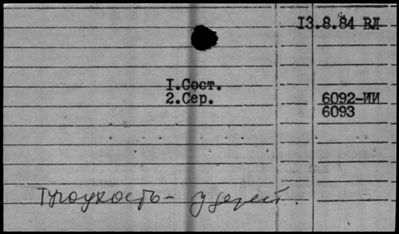 13.8.84 ВЛ
1.Сост.
2.Сер.
6092-ИИ
6093
Тугоухость - у детей.